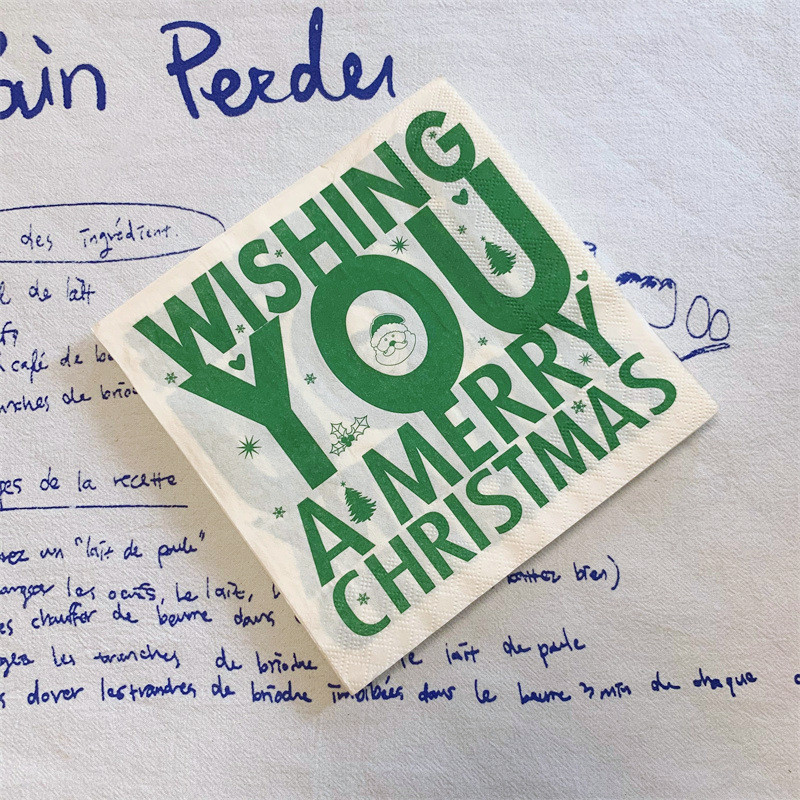 ain Perdu
des ingrédient.
de lait
café de
tranches de brio
WISHING
YOU
A MERRY
CHRISTMAS
pes de la recette
ez un "lait de poule"
anger les oeufs, le lait,
battez bien)
es chauffer de beurre dans
gez les tranches de brioche le lait de poule
dorer les tranches de brioche imbibées dans le beurre 3 min de chaque